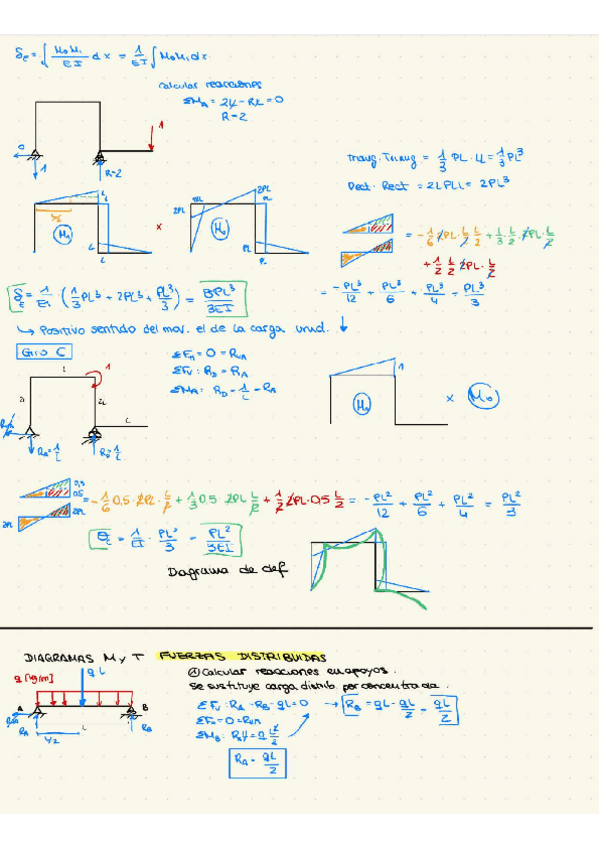 δc = ∫ M₀M₁/EI dx = 1/EI ∫ M₀M₁dx
calcular reacciones
ΣM_A = 2L - RL = 0
R = 2
0
1
R=2
1
Triang. Triang = 1/3 PL · LL = 1/3 PL³
Rect. Rect = 2LPLL = 2PL³
L/2
M₁
L
L
x
2PL
PL
2PL
PL
M₀
PL
= -1/6 2PL · L/2 L/2 + 1/3 · L/2 · 2PL · L/2
+ 1/2 L/2 2PL · L/2
= -PL³/12 + PL³/6 + PL³/4 = PL³/3
δc = 1/EI · (1/3 PL³ + 2PL³ + PL³/3) = 8PL³/3EI
↳ Positivo sentido del mov. el de la carga unid. ↓
Giro C
ΣF_H = 0 = R_HA
ΣF_V: R_D = R_A
ΣM_A: R_D = 1/L = R_A
L
1
2L
2L
L
R_A = 1/L
R_D = 1/L
1
M₁
x M₀
0,5
0,5
2PL
2PL
= -1/6 0,5 · 2PL · L/2 + 1/3 0,5 · 2PL L/2 + 1/2 2PL · 0,5 L/2 = -PL²/12 + PL²/6 + PL²/4 = PL²/3
θc = 1/EI · PL²/3 = PL²/3EI
Diagrama de def
DIAGRAMAS M y T FUERZAS DISTRIBUIDAS
q [kg/m]
qL
A
B
R_HA
R_A
R_B
L/2
L
① Calcular reacciones en apoyos.
Se sustituye carga distrib. por concentrada.
ΣF_V: R_A + R_B - qL = 0 → R_B = qL - qL/2 = qL/2
ΣF_H = 0 = R_HA
ΣM_B: R_A L = q L²/2
R_A = qL/2